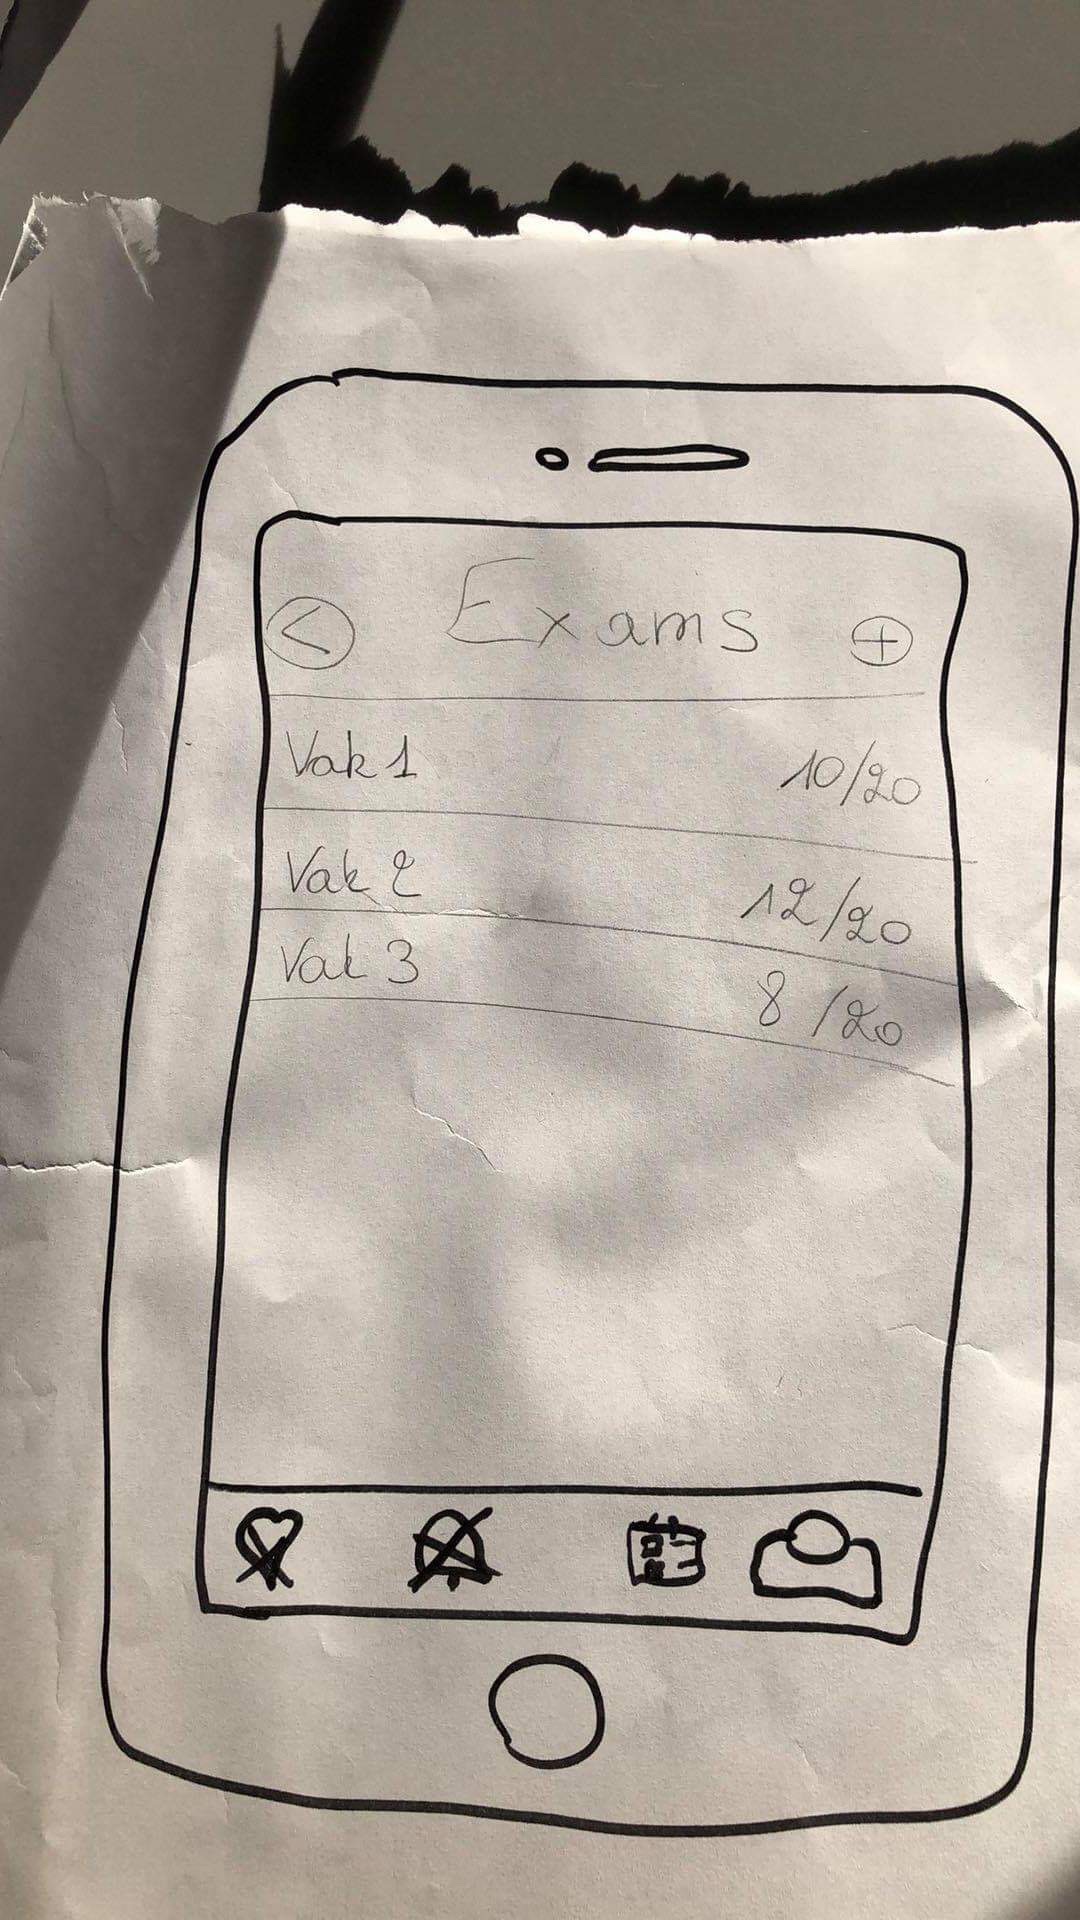 < Exams +
Vak 1 10/20
Vak 2 12/20
Vak 3 8/20